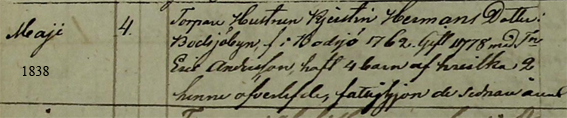 Maji 4. Torpare Hustrun Kjerstin Hermans Dotter i
Bodsjöbyn, f. i Bodsjö 1762. Gift 1778 med Tn
1838 Eric Andersson, haft 4 barn af hvilka 2
henne öfverlefde, fattighjon de sednare åren